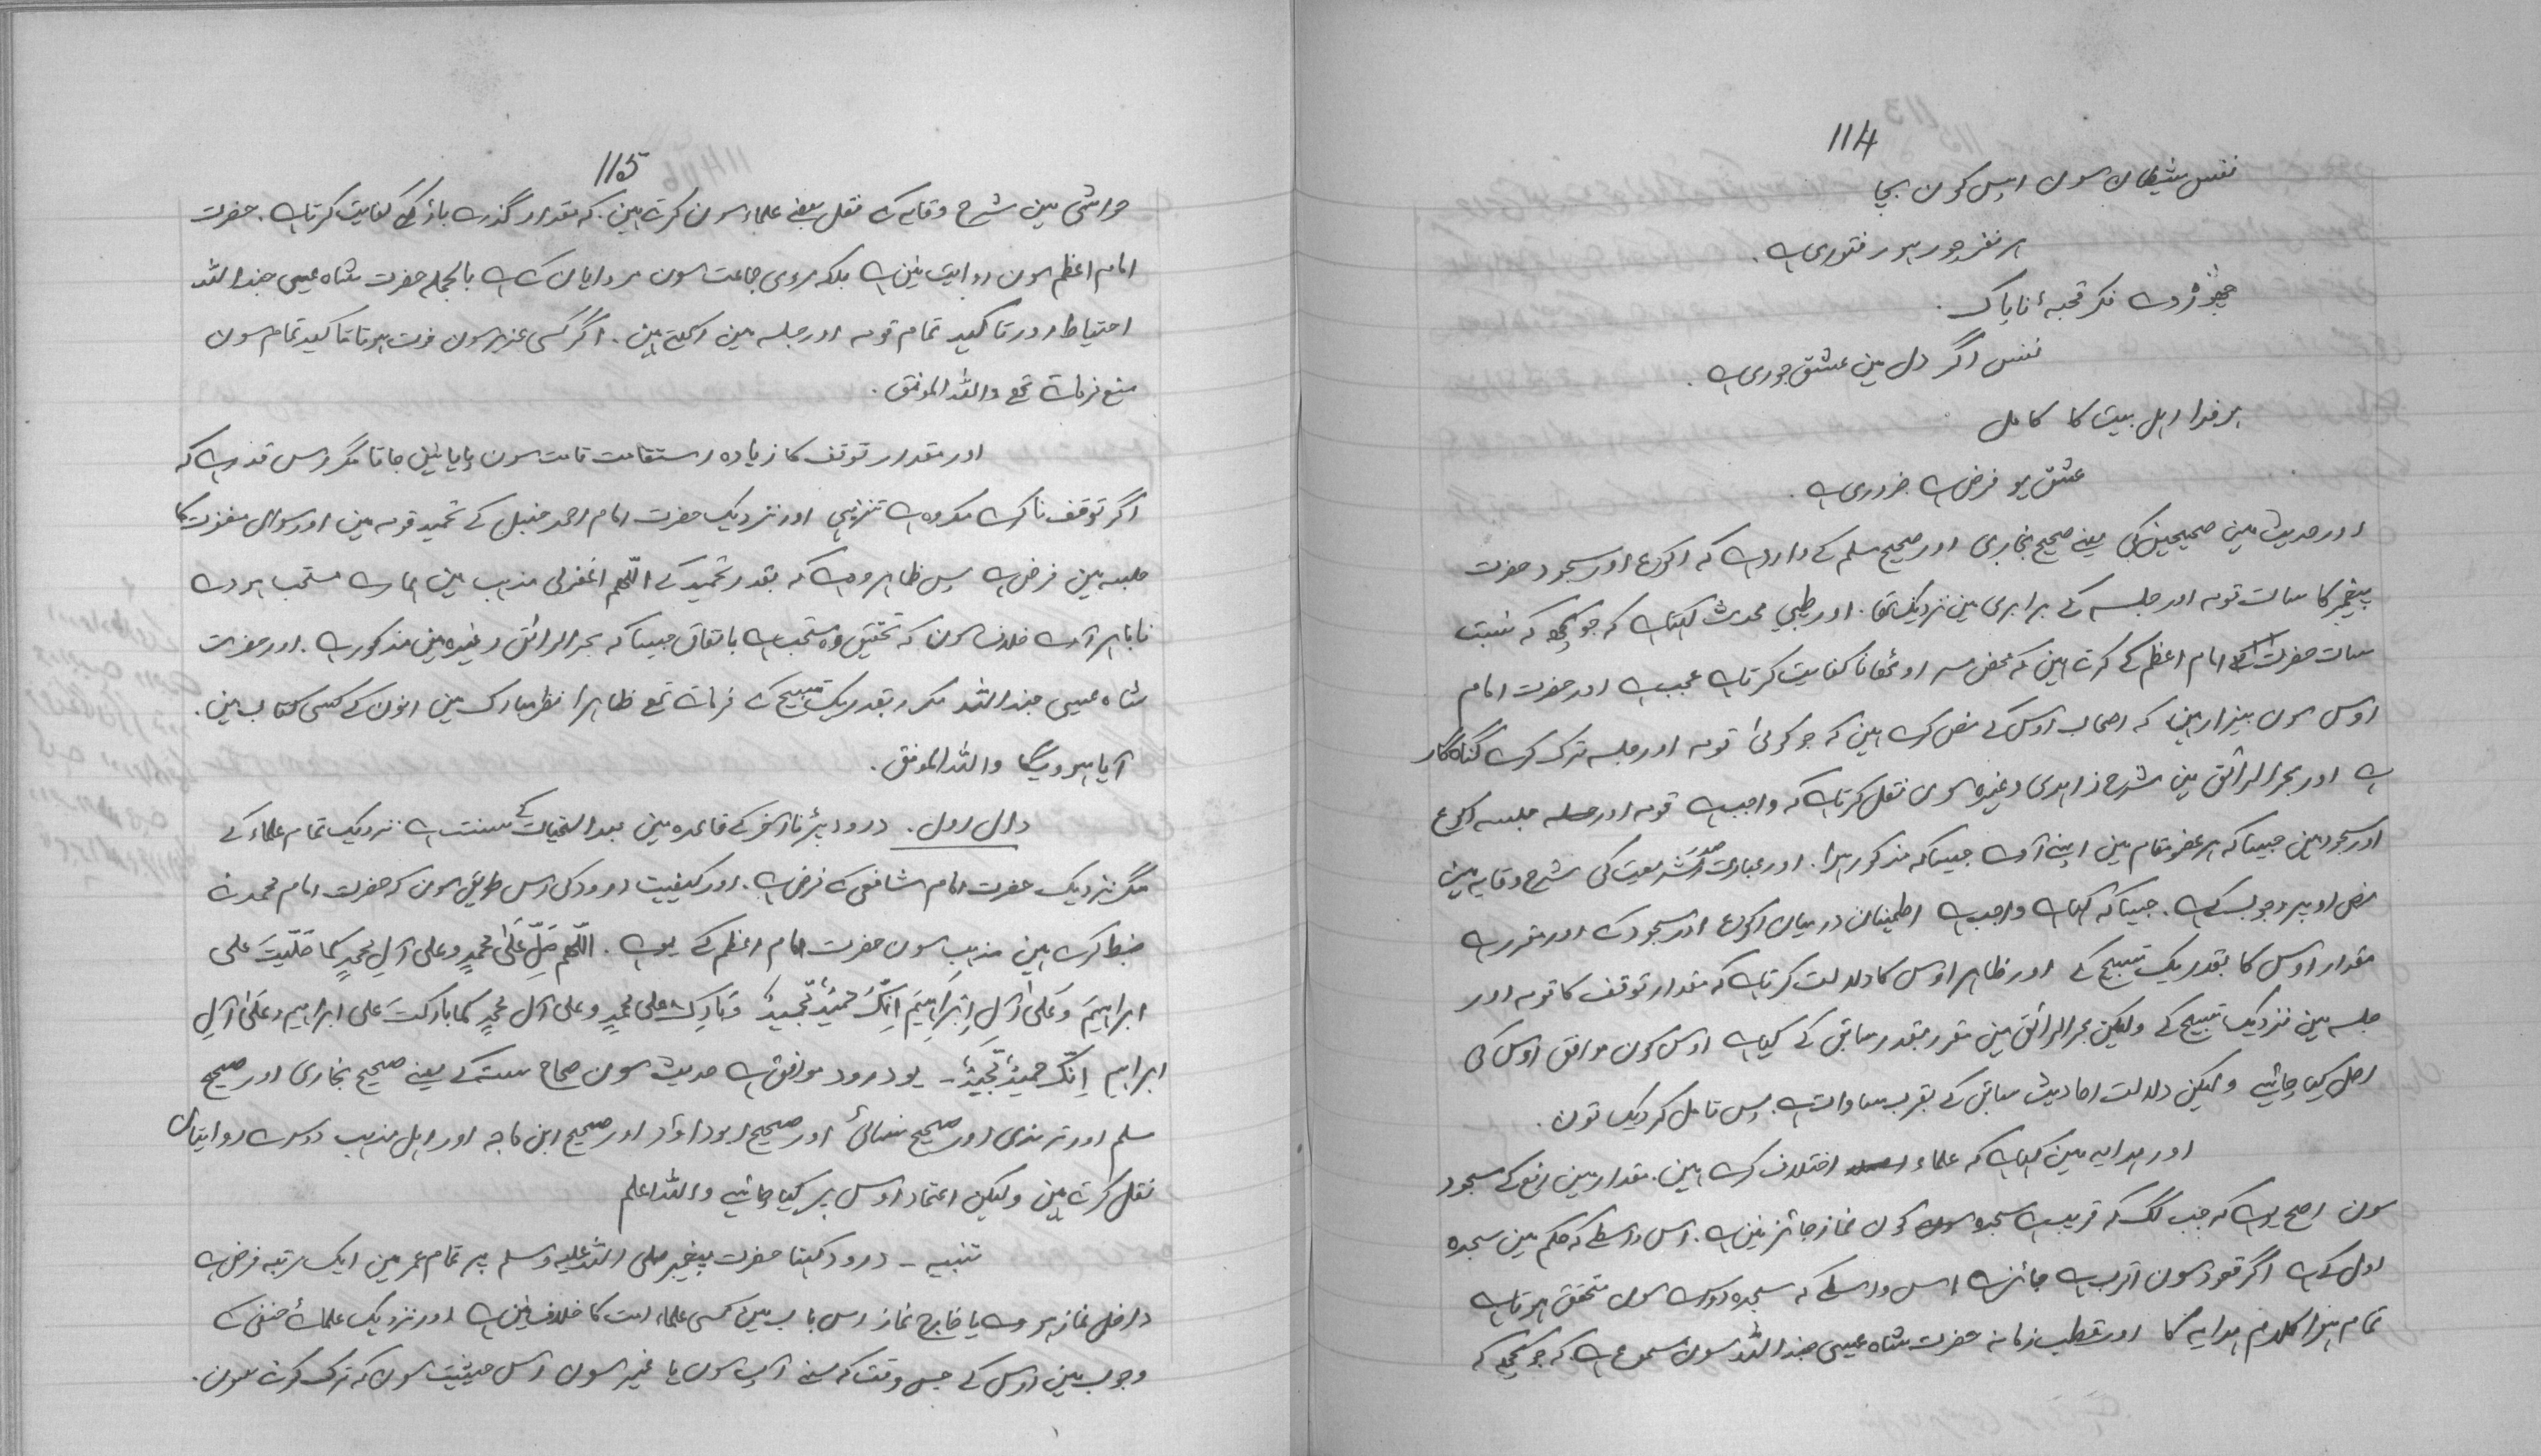 114
نفس شیطان سون اپس کون بچا
ہر نفر چور ہور فتوری ہے۔
چھوڑ دے فکر قحبۂ ناپاک۔
نفس اگر دل مین عشق جوری ہے۔
ہر فدا اہل بیت کا کامل
عشق یو فرض ہے ضروری ہے۔
اور حدیث مین صحیحین کی یعنے صحیح بخاری اور صحیح مسلم کے وارد ہے کہ رکوع اور سجود حضرت
پیغمبر کا سات قومہ اور جلسہ کے برابری مین نزدیک تھا۔ اور طیبی محدث کہتا ہے کہ جو کچھ کہ نسبت
سات حضرت امام اعظم کے کرتے ہین کہ محض سر اوٹھانا کفایت کرتا ہے عجب ہے اور حضرت امام
اوس سون بیزار ہین کہ اصحاب اوس کے نص کرے ہین کہ جو کوئی قومہ اور جلسہ ترک کرے گناہ گار
ہے اور بحر الرائق مین شرح زاہدی وغیرہ سون نقل کرتا ہے کہ واجب ہے قومہ اور جلسہ جیسہ رکوع
اور سجود مین جیسا کہ ہر عضو مقام مین اپنے آوے جیسا کہ مذکور ہوا۔ اور عبارت صدر شریعت کی شرح وقایہ مین
نص اوپر وجوب کے ہے۔ جیسا کہ کہتا ہے واجب ہے اطمینان درمیان رکوع اور سجود کے اور مقرر ہے
مقدار اوس کا بقدر یک تسبیح کے اور ظاہر اوس کا دلالت کرتا ہے کہ مقدار توقف کا قومہ اور
جلسہ مین نزدیک تسبیح کے ولیکن بحر الرائق مین مقرر بقدر سابق کے کیا ہے اوس کون موافق اوس کی
اصل کیا چاہئیے ولیکن دلالت احادیث سابق کے بقرب مساوات ہے۔ پس تامل کر دیک تون۔
اور ہدایہ مین کہتا ہے کہ علماء اختلاف کرے ہین۔ مقدار مین رفع کے سجود
سون اصح یو ہے کہ جب لگ کہ قریب ہے سجدہ سون کون نماز جائز نین ہے۔ اس واسطے کہ حکم مین سجدہ
اول کے ہے اگر قعود سون اقرب ہے جائز ہے اس واسطے کہ سجدہ دوسرا سون متحقق ہوتا ہے
تمام ہوا کلام ہدایہ کا اور قطب زمانہ حضرت شاہ عیسی جند اللہ سون مسموع ہے کہ جو کچھ کہ
115
حواشی مین شرح وقایہ کے نقل بعضے علماء سون کرتے ہین۔ کہ مقدار گذرے باؤ کے کفایت کرتا ہے۔ حضرت
امام اعظم سون روایت نین ہے بلکہ مروی جماعت سون مروایان کے ہے بالجملہ حضرت شاہ عیسی جند اللہ
احتیاط اور تاکید تمام قومہ اور جلسہ مین رکھتے ہین۔ اگر کسی عزیز سون فوت ہوتا تاکید تمام سون
منع فرماتے تھے واللہ الموفق۔
اور مقدار توقف کا زیادہ استقامت قامت سون پایا نین جاتا مگر اس قدر ہے کہ
اگر توقف نا کرے مکروہ ہے تنزیہی اور نزدیک حضرت امام احمد حنبل کے تحمید قومہ مین اور سوال مغفرت کا
جلسہ مین فرض ہے پس ظاہر وہ ہے کہ بقدر تحمید کے اللّٰھم اغفرلی مذہب مین ہمارے مستحب ہووے
تا باہر آوے خلاف سون کہ تحقیق وہ مستحب ہے باتفاق جیسا کہ بحر الرائق وغیرہ مین مذکور ہے۔ اور حضرت
شاہ عیسی جند اللہ مکرر بقدر یک تسبیح کے فرماتے تھے ظاہرا نظر مبارک مین انون کے کسی کتاب مین۔
آیا ہوویگا واللہ الموفق۔
دال اول۔ درود بڑنا آخر کے قاعدہ مین بعد التحیات کے سنت ہے نزدیک تمام علماء کے
مگر نزدیک حضرت امام شافعی کے فرض ہے۔ اور کیفیت درود کی اس طریق سون کہ حضرت امام محمد نے
ضبط کرے ہین مذہب سون حضرت امام اعظم کے یو ہے۔ اللّٰھم صَلِّ عَلٰی محمدٍ وعلی آلِ محمدٍ کما صَلّیتَ علی
ابراہیمَ وَعَلٰی آلِ اِبْرَاہِیْمَ اِنَّکَ حَمِیْدٌ مَّجِیْدٌ وَبَارِک علی محمدٍ وعلی آل محمدٍ کما بارکتَ علی ابراہیم وعَلٰی آلِ
ابراہیم اِنَّکَ حَمِیْدٌ مَّجِیْدٌ۔ یو درود موافق ہے حدیث سون صحاح ستہ کے یعنے صحیح بخاری اور صحیح
مسلم اور ترمذی اور صحیح نسائی اور صحیح ابوداؤد اور صحیح ابن ماجہ اور اہل مذہب دوسرے روایتان
نقل کرتے ہین ولیکن اعتماد اوس پر کیا چاہئیے واللہ اعلم
تنبیہ ۔ درود کہنا حضرت پیغمبر صلی اللہ علیہ وسلم پر تمام عمر مین ایک مرتبہ فرض ہے
داخل نماز ہووے یا خارج نماز اس باب مین کسی علماء امت کا خلاف نین ہے اور نزدیک علمائے حنفی کے
وجوب مین اوس کے جس وقت کہ سنے آپ سون یا غیر سون اس حیثیت سون کہ ترک کرنے سون۔